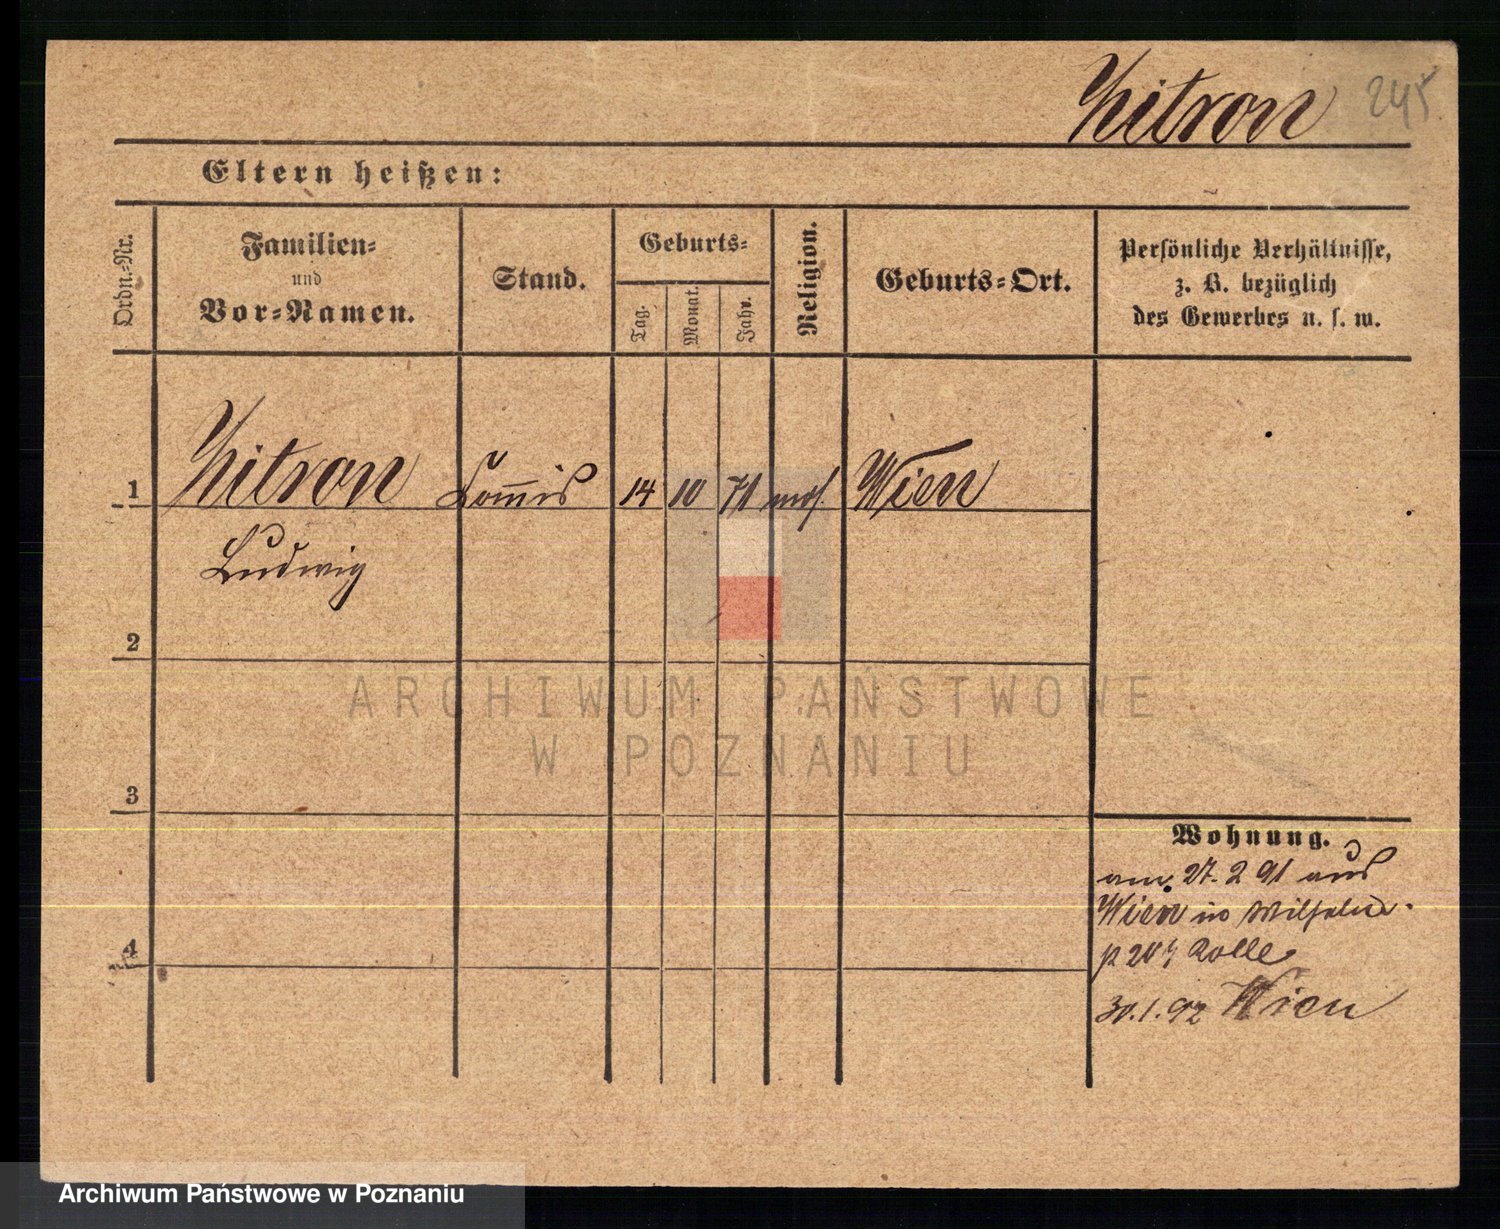 Zitron 245
Eltern heißen:
Ordn.-Nr.
Familien-
und
Vor-Namen.
Stand.
Geburts-
Tag.
Monat.
Jahr.
Religion.
Geburts-Ort.
Persönliche Verhältnisse,
z. B. bezüglich
des Gewerbes u. s. w.
1 Zitron Commis 14 10 71 mos. Wien
Ludwig
2
3
4
Wohnung.
am 27. 2 91 aus
Wien in Wilhelm-
p Rolle
30.1.92 Wien
ARCHIWUM PAŃSTWOWE
W POZNANIU
Archiwum Państwowe w Poznaniu